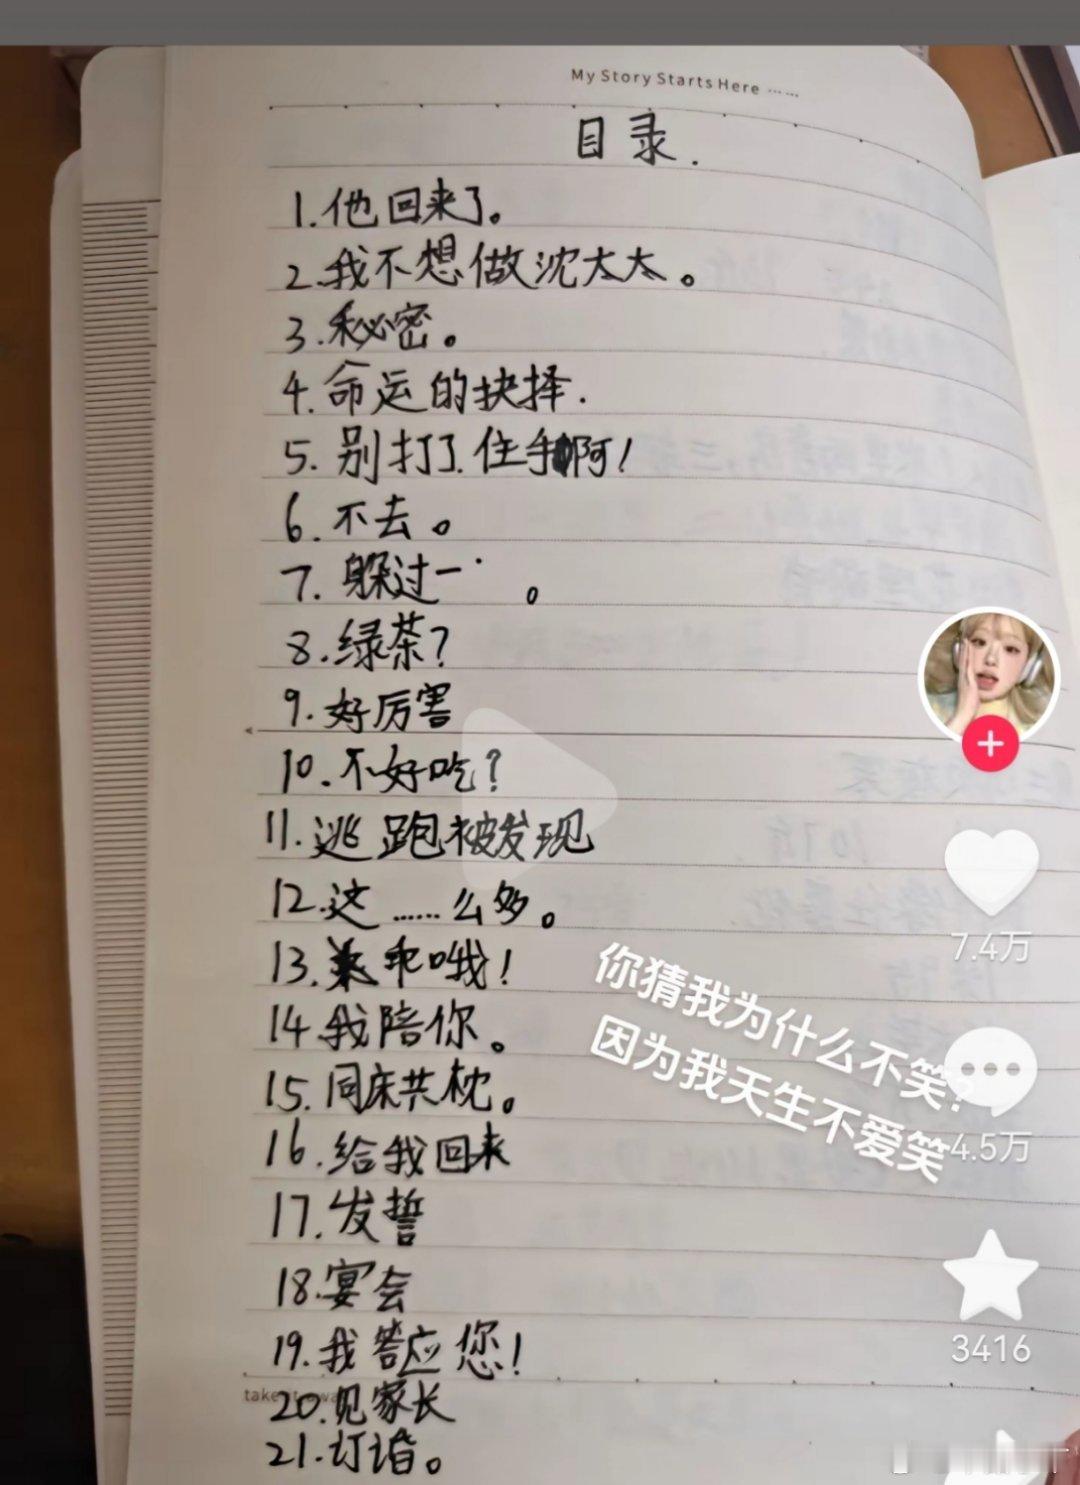 My Story Starts Here ……
目录.
1.他回来了。
2.我不想做沈太太。
3.秘密。
4.命运的抉择.
5.别打了.住手啊!
6.不去。
7.躲过一 。
8.绿茶?
9.好厉害
10.不好吃?
11.逃跑被发现
12.这……么多。
13.乖哦!
14.我陪你。
15.同床共枕。
16.给我回来
17.发誓
18.宴会
19.我答应您!
20.见家长
21.订婚。
你猜我为什么不笑?
因为我天生不爱笑
7.4万
4.5万
3416